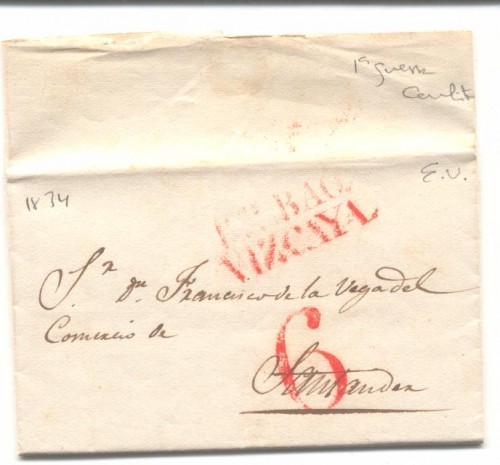 1ª guerra
Carlista
E.V.
1834
BILBAO.
VIZCAYA.
S.r Dn. Francisco de la Vega del
Comercio de
6
Santander